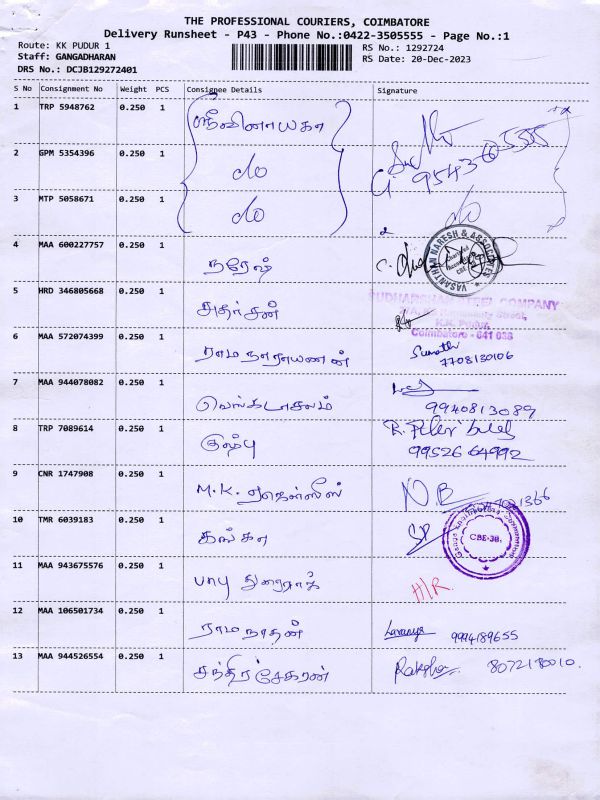 THE PROFESSIONAL COURIERS, COIMBATORE
Delivery Runsheet - P43 - Phone No.:0422-3505555 - Page No.:1
Route: KK PUDUR 1
RS No.: 1292724
Staff: GANGADHARAN
RS Date: 20-Dec-2023
DRS No.: DCJB129272401
S No Consignment No Weight PCS Consignee Details Signature
1 TRP 5948762 0.250 1 ஸ்ரீவிநாயகா
2 GPM 5354396 0.250 1 do
3 MTP 5058671 0.250 1 do do
4 MAA 600227757 0.250 1 நரேஷ்
VASANTHAN NARESH & ASSOCIATES
5 HRD 346805668 0.250 1 அதர்சன்
COMPANY
K.K. Pudur,
Coimbatore - 641 038
6 MAA 572074399 0.250 1 ராமநாராயணன் Sumathi
7708130106
7 MAA 944078082 0.250 1 வெங்கடாசலம்
9940813089
8 TRP 7089614 0.250 1 குஷ்பு
99526 64992
9 CNR 1747908 0.250 1 M.K. N.B
10 TMR 6039183 0.250 1 கங்கா SP
CBE-38.
11 MAA 943675576 0.250 1 பாபு துரைராஜ் H/R.
12 MAA 106501734 0.250 1 ராமநாதன் Lavanya 9994189655
13 MAA 944526554 0.250 1 சந்திரசேகரன் Raksha 8072180010.